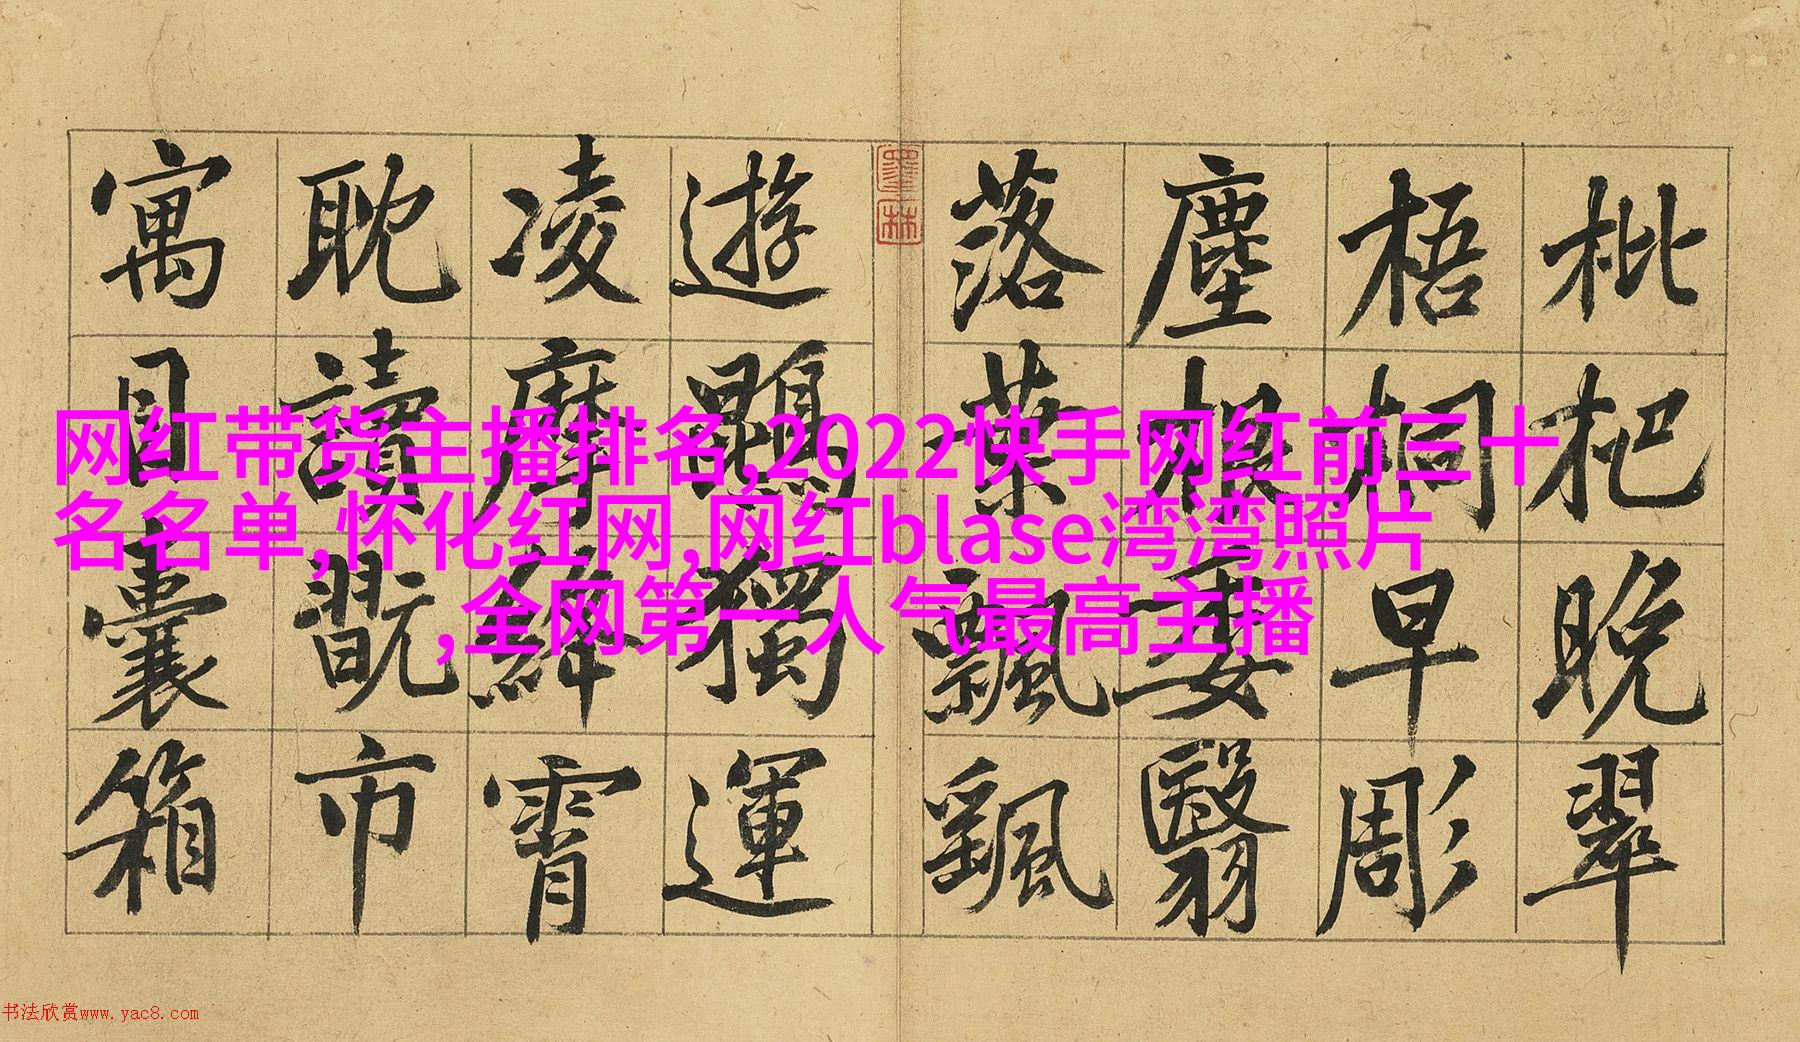 枇杷晚翠
梧桐早彫
塵根委翳
落葉飄颻
墨林
遊鵾獨運
凌摩絳霄
耽讀翫市
寓目囊箱
网红带货主播排名,2022快手网红前三十
名名单,怀化红网,网红blase湾湾照片
,全网第一人气最高主播
书法欣赏www.yac8.com